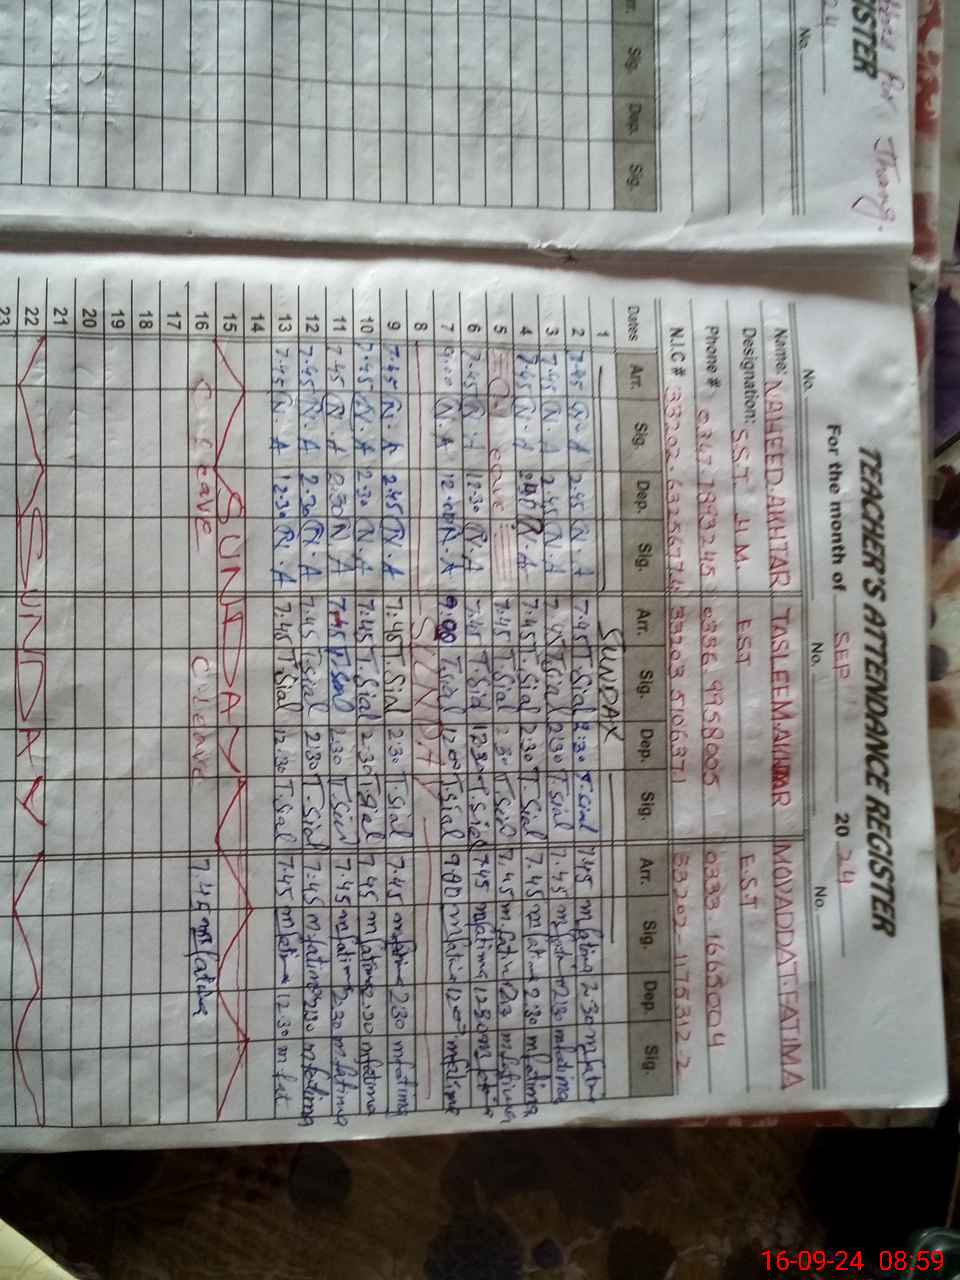 ISTER
No.
24
Sig. Dep. Sig.
Jhang.
TEACHER'S ATTENDANCE REGISTER
For the month of SEP 2024
No. No. No.
Name: NAHEED.AKHTAR TASLEEM.AKHTAR MOVADDAT.FATIMA
Designation: S.S.T H.M. EST E.S.T
Phone # 0347 7893245
N.I.C #
Dates Arr. Sig. Dep. Sig. Arr. Sig. Dep. Sig. Arr. Sig. Dep. Sig.
1 SUNDAY
2 7.45 N.A 2.45 N.A 7:45 T.Sial 2:30 T.Sial 7.45 m fatima 2.30 m fatima
3 7.45 N.A 2.45 N.A 7:45 T.Sial 2:30 T.Sial 7.45 m fatima 2.30 m fatima
4 7.45 N.A N.A 7:45 T.Sial 2:30 T.Sial 7.45 m fatima 2.30 m fatima
5 leave 7:45 T.Sial 2:30 T.Sial 7.45 m fatima m fatima
6 7.45 N.A 12.30 N.A 7:45 T.Sial 12:30 T.Sial 7.45 m fatima 12.30
7 9.00 N.A 12.00 N.A 9:00 T.Sial 12:00 T.Sial 9.00 m fatima 12.00 m fatima
8 SUNDAY
9 7.45 N.A 2.45 N.A 7:45 T.Sial 2:30 T.Sial 7.45 m fatima 2.30 m fatima
10 7.45 N.A 2.30 N.A 7:45 T.Sial 2:30 T.Sial 7.45 m fatima 2.30 m fatima
11 7.45 N.A 2.30 N.A 7:45 T.Sial 2:30 T.Sial 7.45 m fatima 2.30 m fatima
12 7.45 N.A 2.30 N.A 7:45 T.Sial 2:30 T.Sial 7.45 m fatima 2.30 m fatima
13 7.45 N.A 12.30 N.A 7:45 T.Sial 12:30 T.Sial 7.45 m fatima 12.30 m fat
14
15 SUNDAY
16 C leave C leave 7.45 m fatima
17
18
19
20
21
22 SUNDAY
23
16-09-24 08:59